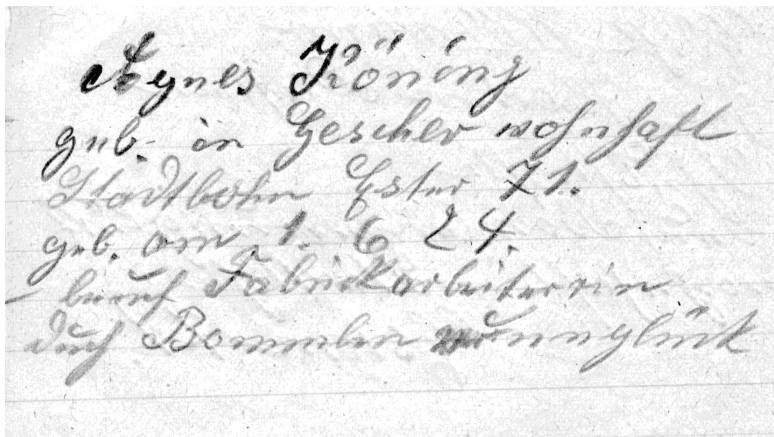 Agnes Köning
geb. in Gescher wohnhaft
Stadtlohn Ester 71.
geb. am 1. 6 24.
beruf Fabrickarbeiterrin
duch Bommben verunnglück